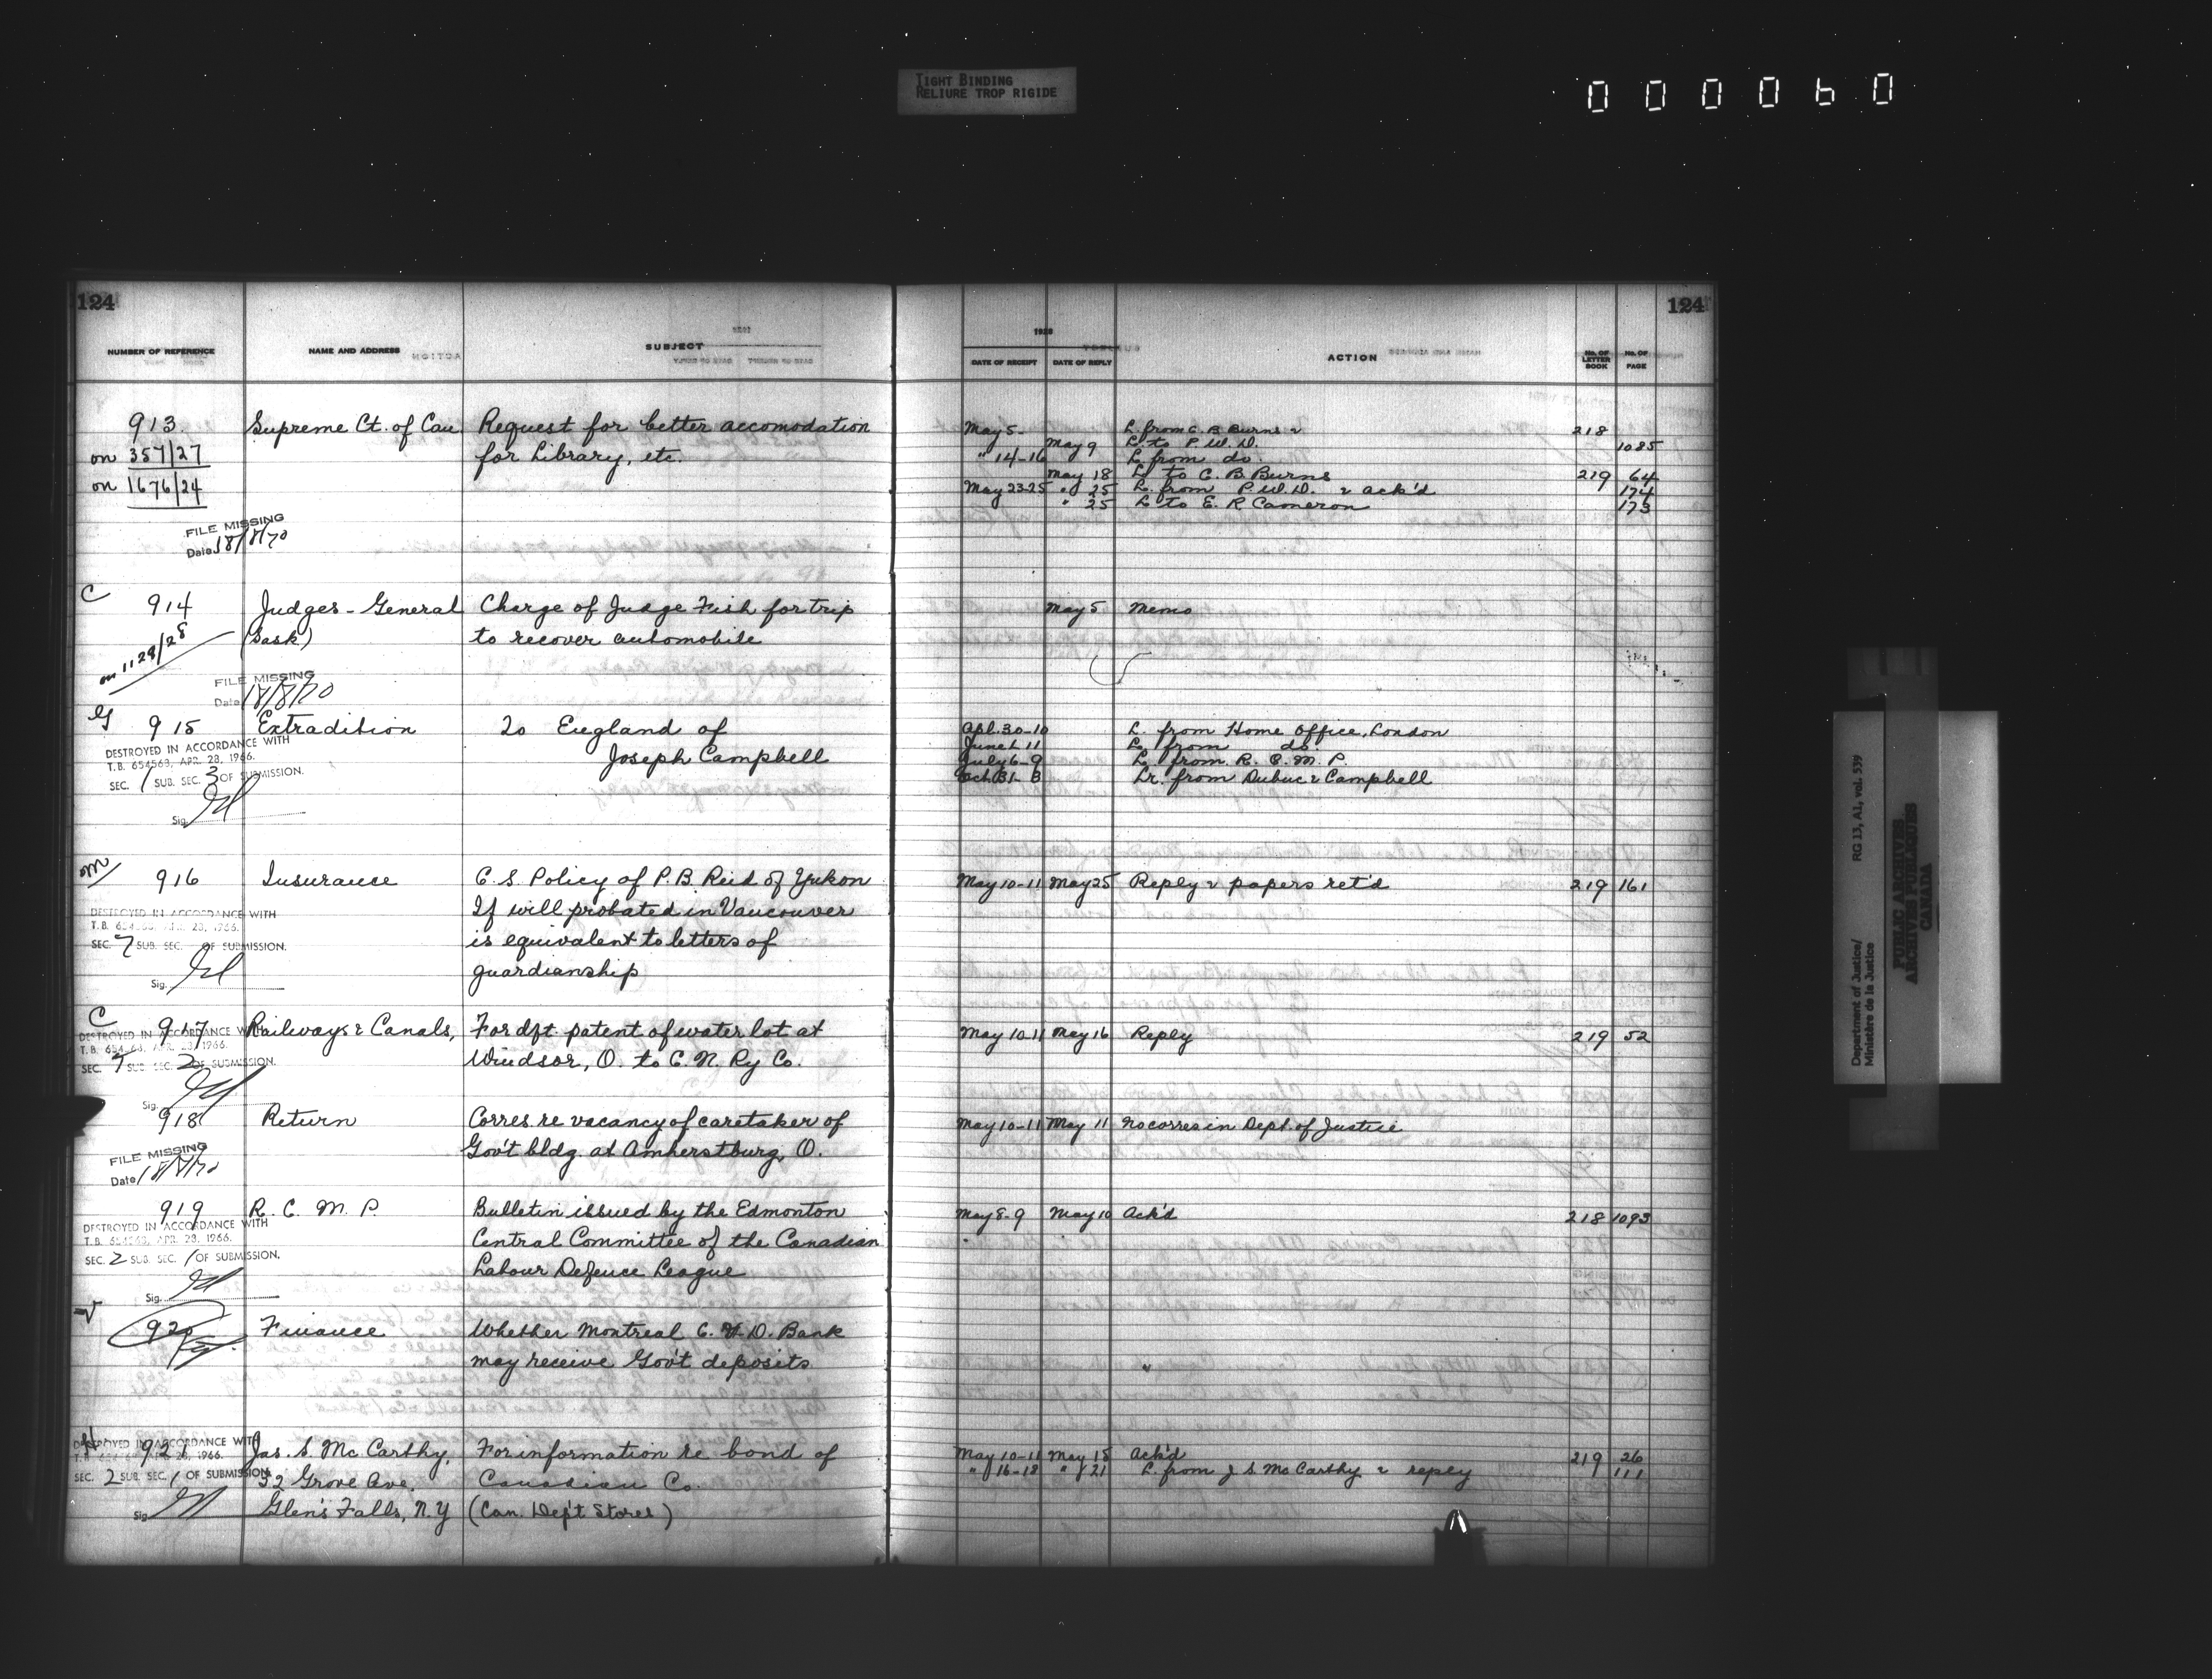 TIGHT BINDING
RELIURE TROP RIGIDE
000060
124
NUMBER OF REFERENCE NAME AND ADDRESS SUBJECT
913. Supreme Ct. of Can Request for better accomodation
on 357/27 for Library, etc.
on 1676/24
FILE MISSING
Date 18/8/70
C
914 Judges - General Charge of Judge Fish for trip
on 1129/28 (Sask) to recover automobile
FILE MISSING
Date 18/8/70
915 Extradition To England of
DESTROYED IN ACCORDANCE WITH Joseph Campbell
T.B. 654563, APR. 28, 1966.
SEC. 1 SUB. SEC. 3 OF SUBMISSION.
Sig.
M
916 Insurance C. S. Policy of P. B. Reid of Yukon
If will probated in Vancouver
DESTROYED IN ACCORDANCE WITH
T.B. 654563, APR. 28, 1966.
SEC. 7 SUB. SEC. OF SUBMISSION. is equivalent to letters of
Sig. guardianship
C
917 Railways & Canals, For dft. patent of water lot at
DESTROYED IN ACCORDANCE WITH
T.B. 654563, APR. 28, 1966.
SEC. 7 SUB. SEC. 2 OF SUBMISSION. Windsor, O. to C. N. Ry Co.
Sig.
918 Return Corres. re vacancy of caretaker of
FILE MISSING Gov't bldg. at Amherstburg, O.
Date 18/8/70
919 R. C. M. P. Bulletin issued by the Edmonton
DESTROYED IN ACCORDANCE WITH
T.B. 654563, APR. 28, 1966. Central Committee of the Canadian
SEC. 2 SUB. SEC. 1 OF SUBMISSION.
Sig. Labour Defence League
920 Finance Whether Montreal C. & D. Bank
may receive Gov't deposits
H
DESTROYED IN ACCORDANCE WITH
921 Jas. S. McCarthy, For information re bond of
T.B. 654563, APR. 28, 1966.
SEC. 2 SUB. SEC. 1 OF SUBMISSION. 32 Grove Ave. Canadian Co.
Sig. Glen's Falls, N.Y (Can. Dep't Stores)
124
1928
DATE OF RECEIPT DATE OF REPLY ACTION No. OF LETTER BOOK No. OF PAGE
May 5- L. from C. B. Burns & 218
May 9 L. to P. W. D. 1085
" 14-16 L. from do.
May 18 L. to C. B. Burns 219 64
May 23-25 " 25 L. from P. W. D. & ack'd 174
" 25 L. to E. R. Cameron 173
May 5 Memo
Apl. 30-10 L. from Home Office, London
June 1 11 L. from do.
July 6-9 L. from R. C. M. P.
Oct 31- Lr. from Dubuc & Campbell
May 10-11 May 25 Reply & papers ret'd 219 161
May 10-11 May 16 Reply 219 52
May 10-11 May 11 No corres in Dept. of Justice
May 8-9 May 10 Ack'd 218 1093
"
May 10-11 May 15 Ack'd 219 26
" 16-18 " 21 L. from J. S. McCarthy & reply 111
Department of Justice/
Ministère de la Justice
RG 13, A1, vol. 539
PUBLIC ARCHIVES
ARCHIVES PUBLIQUES
CANADA